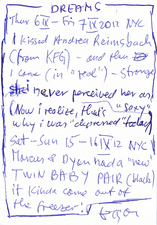 DREAMS
Thur 6 IX - Fri 7 IX 2012 NYC
I kissed Andrea Reimsbach
(from KFG) - and then
I came (in "real") - strange
never perceived her as "sexy"
(Now I realize, that's
why i was "depressed" today)
Sat-Sun 15-16 IX 12 NYC
Marcus & Dyon had a "new"
TWIN BABY PAIR (black)
it kinda come out of
the freezer!